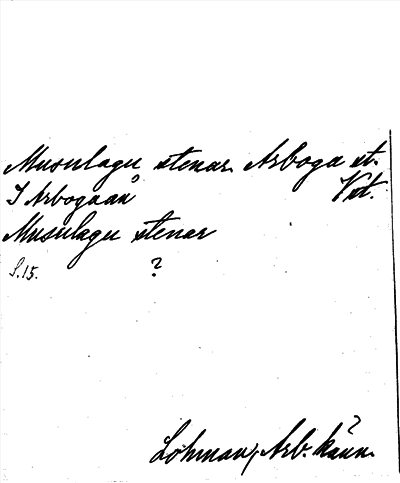 Musulagu stenar. Arboga st.
I Arbogaån Vst.
Musulagu stenar
S. 15. ?
Lohman, Arb. känn.